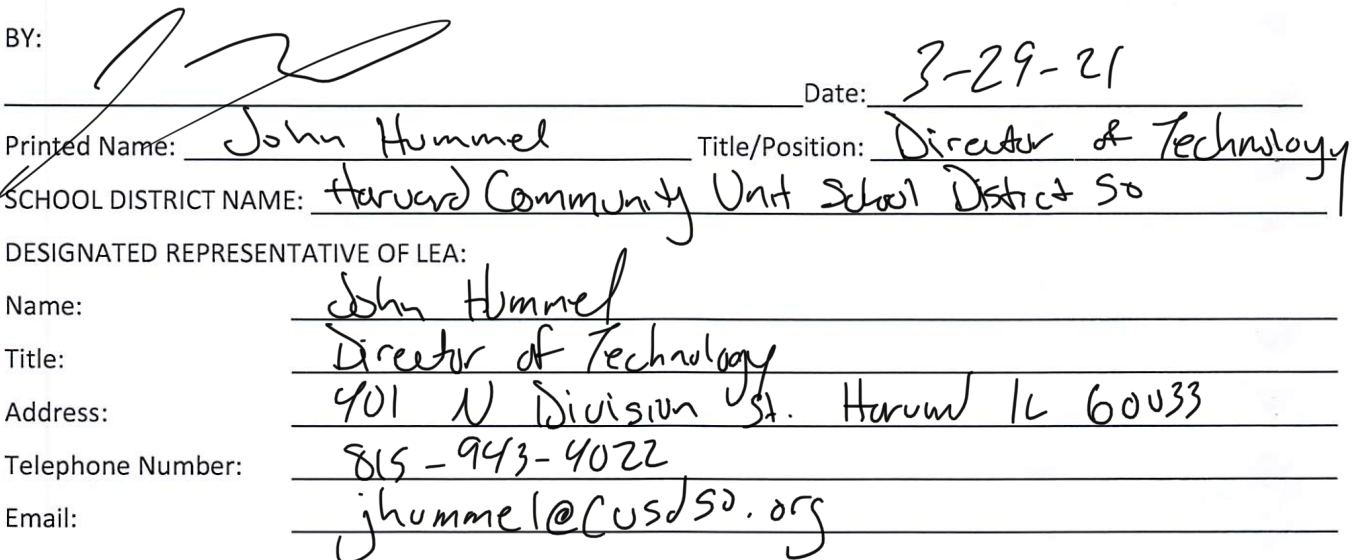 BY:
Date: 3-29-21
Printed Name: John Hummel Title/Position: Director of Technology
SCHOOL DISTRICT NAME: Harvard Community Unit School District 50
DESIGNATED REPRESENTATIVE OF LEA:
Name: John Hummel
Title: Director of Technology
Address: 401 N Division St. Harvard IL 60033
Telephone Number: 815-943-4022
Email: jhummel@cusd50.org